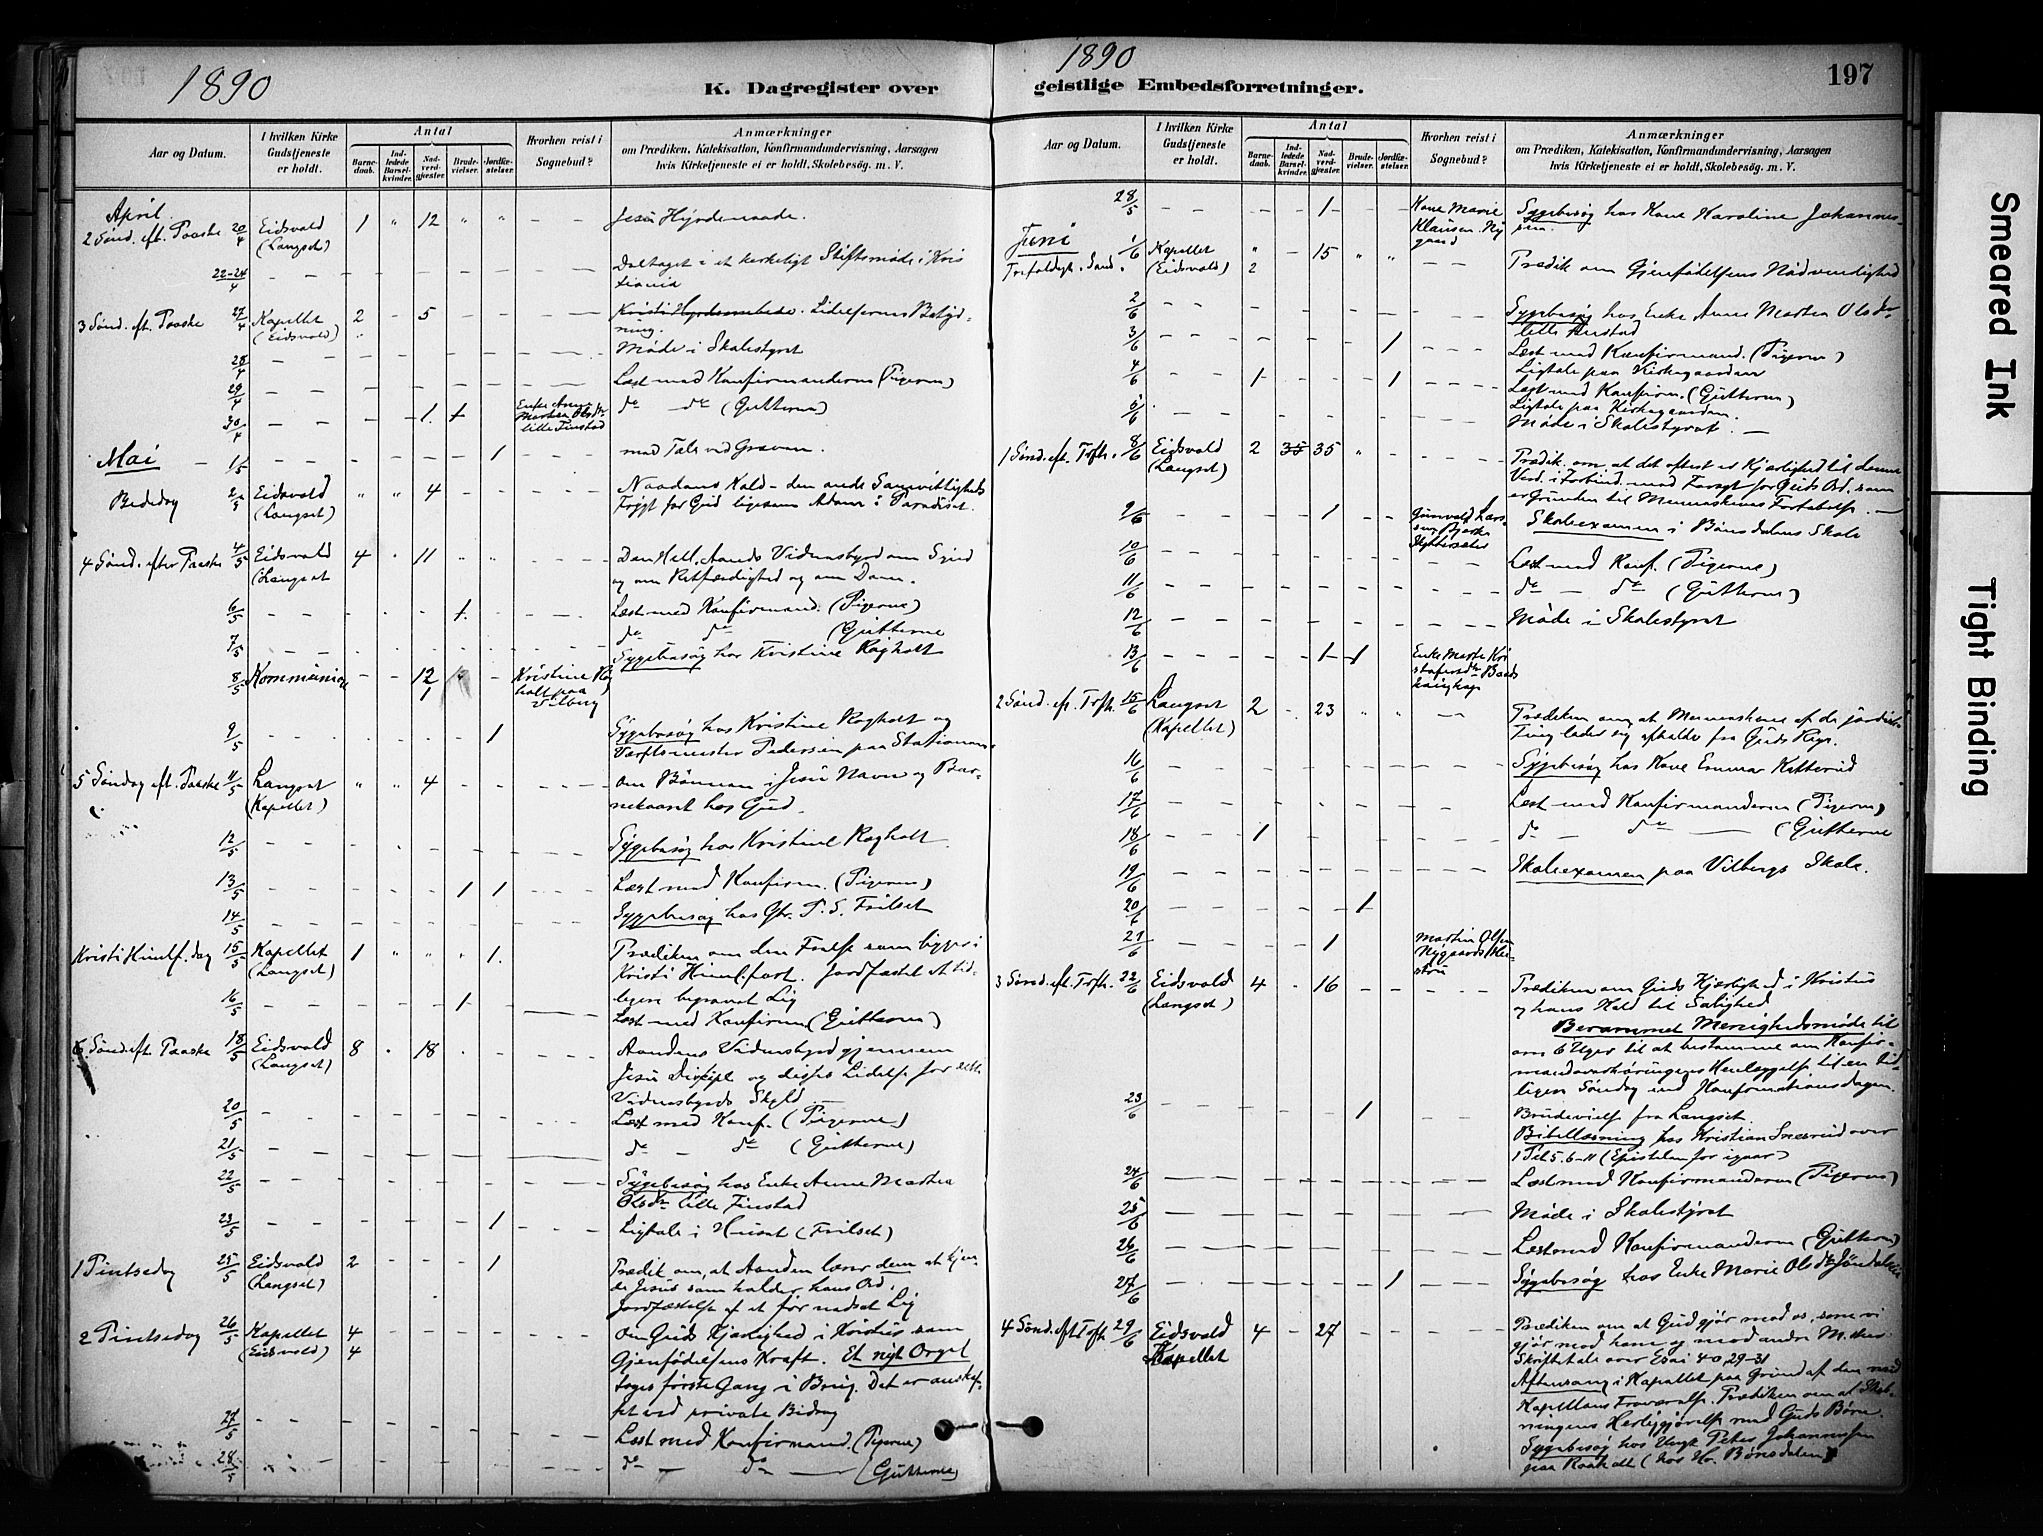 1890
K. Dagregister over
Aar og Datum.
I hvilken Kirke Gudstjeneste er holdt.
Antal
Barnedaab.
Indledede Barselkvinder.
Nadverdgjæster.
Brudevielser.
Jordfæstelser.
Hvorhen reist i Sognebud?
Anmærkninger
om Prædiken, Katekisation, Konfirmandundervisning, Aarsagen
hvis Kirketjeneste ei er holdt, Skolebesøg. m. V.
April
2 Sønd. eft. Paaske 20/4 Eidsvold (Langset) 1 " 12 " "
22-24/4 Deltaget i et kirkeligt Stiftsmøde i Kris
tiania
3 Sønd. eft. Paaske 27/4 Kapellet (Eidsvold) 2 - 5 Lidelsernes Betyd-
ning.
Møde i Skolestyret
28/4
29/4 Læst med Konfirmanderne (Pigerne)
30/4 1 1 Enke Anne Marthea Olsdtr lille Finstad do - do (Gutterne)
Mai 1/5 1 med Tale ved Graven.
Bededag 2/5 Eidsvold (Langset) " " 4 Naadens Kald - den onde Samvittigheds
Frygt for Gud ligesom Adam i Paradiset.
4 Sønd. efter Paaske 4/5 Eidsvold (Langset 4 " 11 Den Hell. Aands Vidnesbyrd om Synd
og om Retfærdighed og om Dom.
6/5 1 Læst med Konfirmand. (Pigerne)
7/5 do do (Gutterne
Sygebesøg hos Kristine Rogholt
8/5 Kommunion 12 1 Kristine Ro holt paa Vilberg
9/5 1 Sygebesøg hos Kristine Rogholt og
Værftsmester Pedersen paa Stationen
5 Søndag eft. Paaske 11/5 Langset (Kapellet) " " 4 om Bønnen i Jesu Navn og
hos Gud.
12/5 Sygebesøg hos Kristine Rogholt
13/5 1 1 Læst med Konfirm. (Pigerne)
14/5 Sygebesøg hos P. S. Frilset
Kristi Himlf. dag 15/5 Kapellet (Langset) 1 " " " 1. Prædiken om den Frelse som ligger i
Kristi Himlfart. Jordfæstet et tid-
ligere begravet Lig
16/5 1 Læst med Konfirm (Gutterne)
6. Sønd eft. Paaske 18/5 Eidsvold (Langset) 8 18 Aandens Vidnesbyrd gjennem
Jesu Disciple og disses Lidelse for dette
Vidnesbyrds Skyld
20/5 Læst med Konf. (Pigerne)
21/5 do - do (Gutterne)
22/5 Sygebesøg hos Enke Anne Marthea
Olsdtr lille Finstad
23/5 1 Ligtale i Huset (Frilset)
1 Pintsedag 25/5 Eidsvold (Langset) 2 1 Prædik om, at Aanden lærer dem at kjen-
de Jesus som holder hans Ord.
Jordfæstelse af et før nedsat Lig
2 Pintsedag 26/5 Kapellet (Eidsvold) 4 4 Om Guds Kjærlighed i Kristus som
Gjenfødelsens Kraft. Et nyt Orgel
toges første Gang i Brug. Det er anskaf-
fet ved private Bidrag
27/5 Læst med Konfirmand. (Pigerne)
28/5 do - do - (Gutterne)
1890
geistlige Embedsforretninger.
197
Aar og Datum.
I hvilken Kirke Gudstjeneste er holdt.
Antal
Barnedaab.
Indledede Barselkvinder.
Nadverdgjæster.
Brudevielser.
Jordfæstelser.
Hvorhen reist i Sognebud?
Anmærkninger
om Prædiken, Katekisation, Konfirmandundervisning, Aarsagen
hvis Kirketjeneste ei er holdt, Skolebesøg. m. V.
28/5 1 Kone Marie Klausen Nygaard Sygebesøg hos Kone Karoline Johannes
sen.
Juni 1/6 Kapellet (Eidsvold) " 2 - 15 " "
Trefoldigh. Sønd. Prædik om Gjenfødelsens Nødvendighed
2/6 Sygebesøg hos Enke Anne Marthea Olsdtr
lille Finstad
3/6 1 Læst med Konfirmand. (Pigerne)
Ligtale paa Kirkegaarden
4/6 1 1 Læst med Konfirm. (Gutterne)
Ligtale paa Kirkegaarden.
5/6 Møde i Skolestyret. -
1 Sønd. eft. Trefh. 8/6 Eidsvold (Langset) 2 35 35 " Prædik om, at det oftest er Kjærlighed til denne
Verd. i Forbind. med Foragt for Guds Ord, som
er Grunden til Menneskenes Fortabelse. -
9/6 1 Skoleexamen i Bønsdalens Skole
10/6 Læst med Konf. (Pigerne)
11/6 do - do (Gutterne)
12/6 Møde i Skolestyret
13/6 1 1
2 Sønd. ef. Trefh. 15/6 Langset (Kapellet) 2 - 23 " " Prædiken om, at Menneskene af de jordiske
Ting lader sig afholde fra Guds Rige.
16/6 Sygebesøg hos Kone Emma Ketterud
17/6 Læst med Konfirmanderne (Pigerne)
18/6 1 do - do - (Gutterne
19/6 Skoleexamen paa Vilbergs Skole.
20/6 1
21/6 1 Martin Olsen
3 Sønd. eft. Trefh. 22/6 Eidsvold (Langset) 4 - 16 Prædiken om Guds Kjærlighed i Kristus
og hans Kald til Salighed
Berammet Menighedsmøde til
om 6 Uger til at bestemme om Konfir-
mandoverhøringens Henlæggelse til en tid-
ligere Søndag end Konfirmationsdagen.
23/6 1 Brudevielse fra Langset.
Bibellæsning hos Kristian over
1 Pet 5. 6-11 (Epistelen for igaar)
24/6 Læst med Konfirmanderne (Pigerne)
25/6 Møde i Skolestyret
26/6 Læst med Konfirmanderne (Gutterne)
27/6 1 Sygebesøg hos Enke Marie Olsdtr
4 Sønd. eft Trefh 29/6 Eidsvold Kapellet 4 - 27 Prædiken om at Gud gjør mod os, som vi
gjør mod ham og mod andre
Skriftetale over Esai 40, 29-31
Aftensang i Kapellet paa Grund af den med
Kapellans Fraværelse. Prædiken om at Skab-
ningens Herliggjørelse med Guds Børn.
Sygebesøg hos Peter Johannessen
paa Raaholt (hos Bønsdalen)
Smeared Ink
Tight Binding